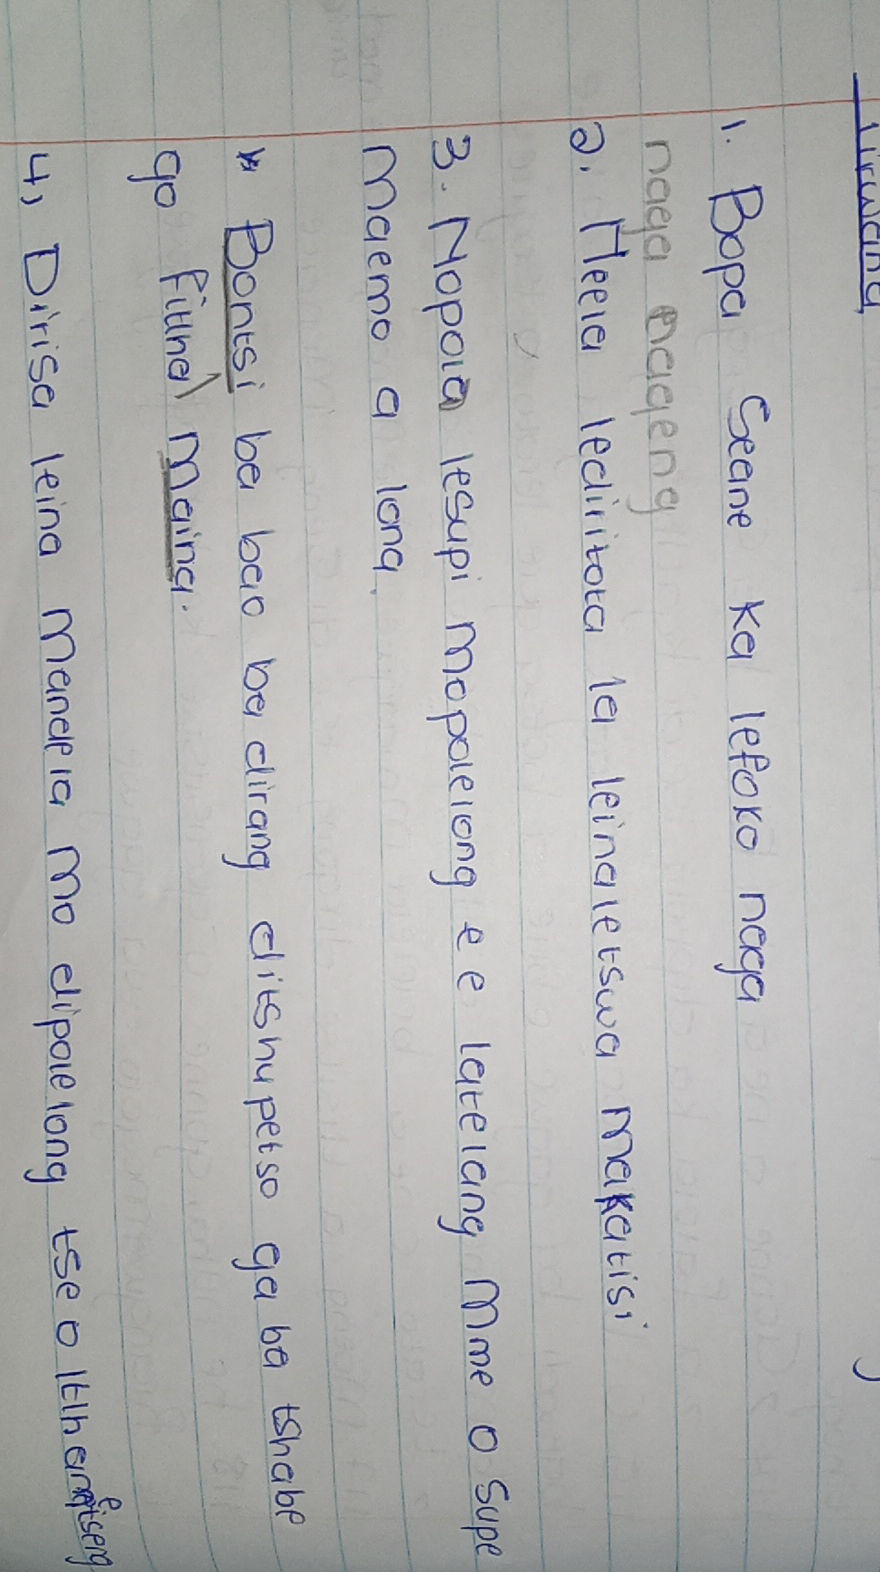 1. Bopa Seane ka lefoko naga
naga nageng
2. Neela lediritota la leinaletswa makatisi
3. Nopola lesupi mopolelong e e latelang Mme o supe
maemo a lona.
* Bontsi ba bao ba dirang ditshupetso ga ba tshabe
go fitlha maina.
4) Dirisa leina Mandela mo dipolelong tse o